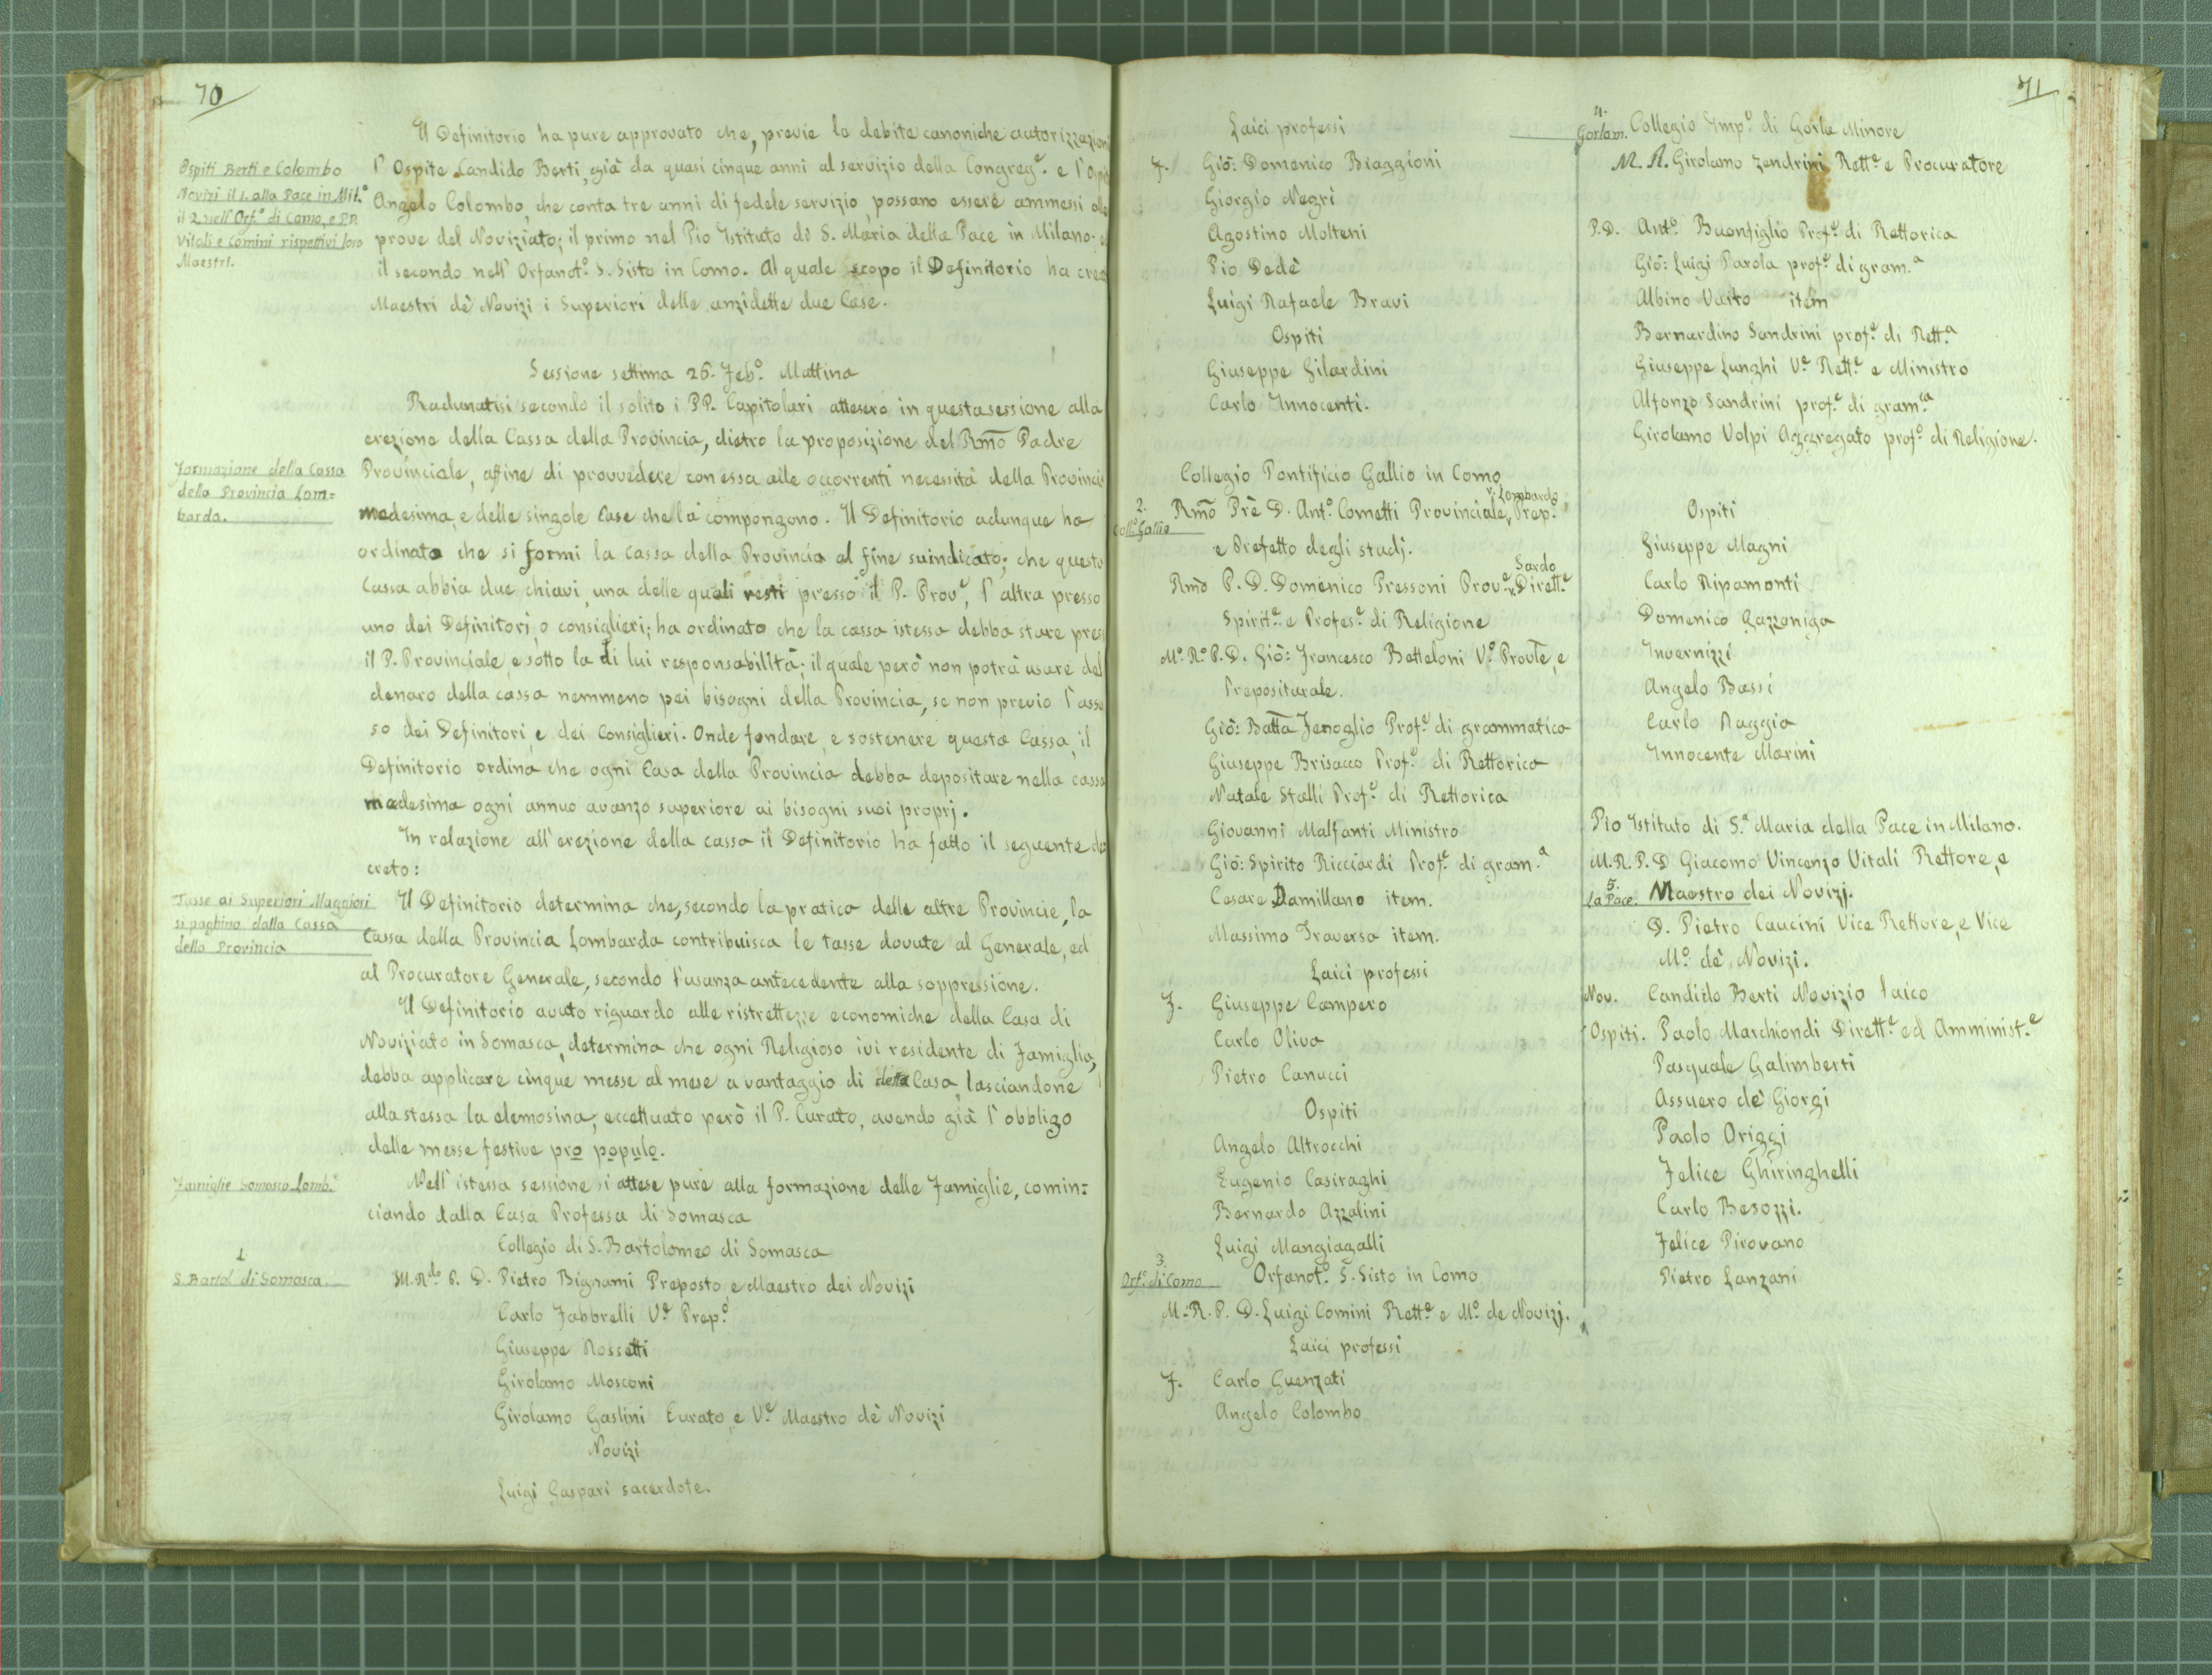 70
Il Definitorio ha pure approvato che, previe le debite canoniche autorizzazioni
Ospiti Berti e Colombo
Novizi il 1. alla Pace in Mil.º
il 2 nell'Orf.º di Como, e PP.
Vitali e Comini rispettivi loro
Maestri.
l'Ospite Candido Berti, già da quasi cinque anni al servizio della Congreg.e e l'
Angelo Colombo, che conta tre anni di fedele servizio, possano essere ammessi
prove del Noviziato; il primo nel Pio Istituto di S. Maria della Pace in Milano;
il secondo nell'Orfanot.º S. Sisto in Como. Al quale scopo il Definitorio ha
Maestri dè Novizi i Superiori delle anzidette due Case.
Sessione settima 26. Feb.º Mattina
Radunatisi secondo il solito i PP. Capitolari attesero in questa sessione alla
erezione della Cassa della Provincia, dietro la proposizione del Rmo Padre
Formazione della Cassa
della Provincia Lom=
barda.
Provinciale, affine di provvedere con essa alle occorrenti necessità della Provincia
medesima, e delle singole Case che la compongono. Il Definitorio adunque ha
ordinato che si formi la cassa della Provincia al fine suindicato; che questa
Cassa abbia due chiavi, una delle quali resti presso il P. Prov.e, l'altra presso
uno dei Definitori, o consiglieri; ha ordinato che la cassa istessa debba stare
il P. Provinciale, e sotto la di lui responsabilità; il quale però non potrà usare del
denaro della cassa nemmeno pei bisogni della Provincia, se non previo l'
so dei Definitori, e dei Consiglieri. Onde fondare, e sostenere questa Cassa, il
Definitorio ordina che ogni Casa della Provincia debba depositare nella cassa
medesima ogni annuo avanzo superiore ai bisogni suoi proprj.
In relazione all'erezione della cassa il Definitorio ha fatto il seguente de
creto:
Tasse ai Superiori Maggiori
si paghino dalla Cassa
della Provincia
Il Definitorio determina che, secondo la pratica delle altre Provincie, la
Cassa della Provincia Lombarda contribuisca le tasse dovute al Generale, ed
al Procuratore Generale, secondo l'usanza antecedente alla soppressione.
Il Definitorio avuto riguardo alle ristrettezze economiche della Casa di
Noviziato in Somasca, determina che ogni Religioso ivi residente di Famiglia,
debba applicare cinque messe al mese a vantaggio di detta Casa, lasciandone
alla stessa la elemosina; eccettuato però il P. Curato, avendo già l'obbligo
delle messe festive pro populo.
Famiglie Somasco Lomb.e
Nell'istessa sessione si attese pure alla formazione delle Famiglie, comin=
ciando dalla Casa Professa di Somasca
Collegio di S. Bartolomeo di Somasca
1
S. Bartol. di Somasca.
M. Rdo P. D. Pietro Bignami Preposto, e Maestro dei Novizi
Carlo Fabbrelli V.e Prep.º
Giuseppe Rossetti
Girolamo Mosconi
Girolamo Gaslini Curato, e V.e Maestro dè Novizi
Novizi
Luigi Gaspari sacerdote.
71
Laici professi
F. Giò: Domenico Biaggioni
Giorgio Negri
Agostino Molteni
Pio Dedè
Luigi Rafaele Bravi
Ospiti
Giuseppe Gilardini
Carlo Innocenti.
Collegio Pontificio Gallio in Como
2.
Coll.º Gallio
Rmo Prè D. Ant.º Cometti Provinciale v. Lombardo, Prep.º
e Prefetto degli studj.
Rmo P. D. Domenico Pressoni Prov.e Sardo v. Dirett.e
Spirit.e e Profes.e di Religione
M.º R.º P. D. Giò: Francesco Betteloni V.e Provle, e
Prepositurale.
Giò: Batta Fenoglio Prof.e di grammatica
Giuseppe Brisacco Prof.e di Rettorica
Natale Stalli Prof.e di Rettorica
Giovanni Malfanti Ministro
Giò: Spirito Ricciardi Prof.e di gram.a
Cesare Damillano item.
Massimo Traversa item.
Laici professi
F. Giuseppe Campero
Carlo Oliva
Pietro Canucci
Ospiti
Angelo Altrocchi
Eugenio Casiraghi
Bernardo Azzalini
Luigi Mangiagalli
3.
Orf.º di Como
Orfanot.º S. Sisto in Como
M. R. P. D. Luigi Comini Rett.e e M.º de Novizj.
Laici professi
F. Carlo Guenzati
Angelo Colombo
4.
Gorlam.
Collegio Imp.e di Gorla Minore
M. R. Girolamo Zendrini Rett.e e Procuratore
P. D. Ant.º Buonfiglio Prof.e di Rettorica
Giò: Luigi Parola prof.e di gram.a
Albino Vaito item
Bernardino Sandrini prof.e di Rett.a
Giuseppe Lunghi V.e Rett.e e Ministro
Alfonzo Sandrini prof.e di gram.ca
Girolamo Volpi Aggregato prof.e di Religione.
Ospiti
Giuseppe Magni
Carlo Ripamonti
Domenico Gazzaniga
Invernizzi
Angelo Bassi
Carlo Raggio
Innocente Marini
Pio Istituto di S.a Maria della Pace in Milano.
M. R. P. D Giacomo Vincenzo Vitali Rettore, e
5.
la Pace.
Maestro dei Novizj.
D. Pietro Caucini Vice Rettore, e Vice
M.º dè Novizi.
Nov. Candido Berti Novizio laico
Ospiti. Paolo Marchiondi Dirett.e ed Amminist.e
Pasquale Galimberti
Assuero dè Giorgi
Paolo Origgi
Felice Ghiringhelli
Carlo Besozzi.
Felice Pirovano
Pietro Lanzani